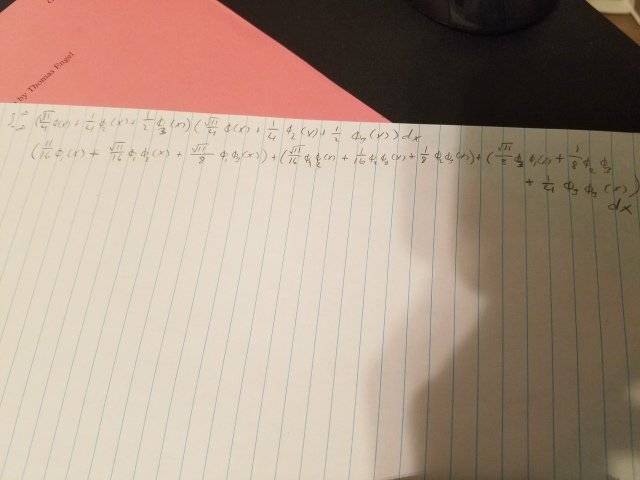 by Thomas Engel
∫_{-∞}^{∞} (√11/4 ϕ(x) + 1/4 ϕ₂(x) + 1/2 ϕ₃(x)) (√11/4 ϕ(x) + 1/4 ϕ₂(x) + 1/2 ϕ₃(x)) dx
(11/16 ϕ₁(x) + √11/16 ϕ₁ϕ₂(x) + √11/8 ϕ₁ϕ₃(x)) + (√11/16 ϕ₁ϕ₂(x) + 1/16 ϕ₂ϕ₂(x) + 1/8 ϕ₂ϕ₃(x)) + (√11/8 ϕ₃ϕ₁(x) + 1/8 ϕ₂ϕ₃
+ 1/4 ϕ₃ϕ₃(x))
dx